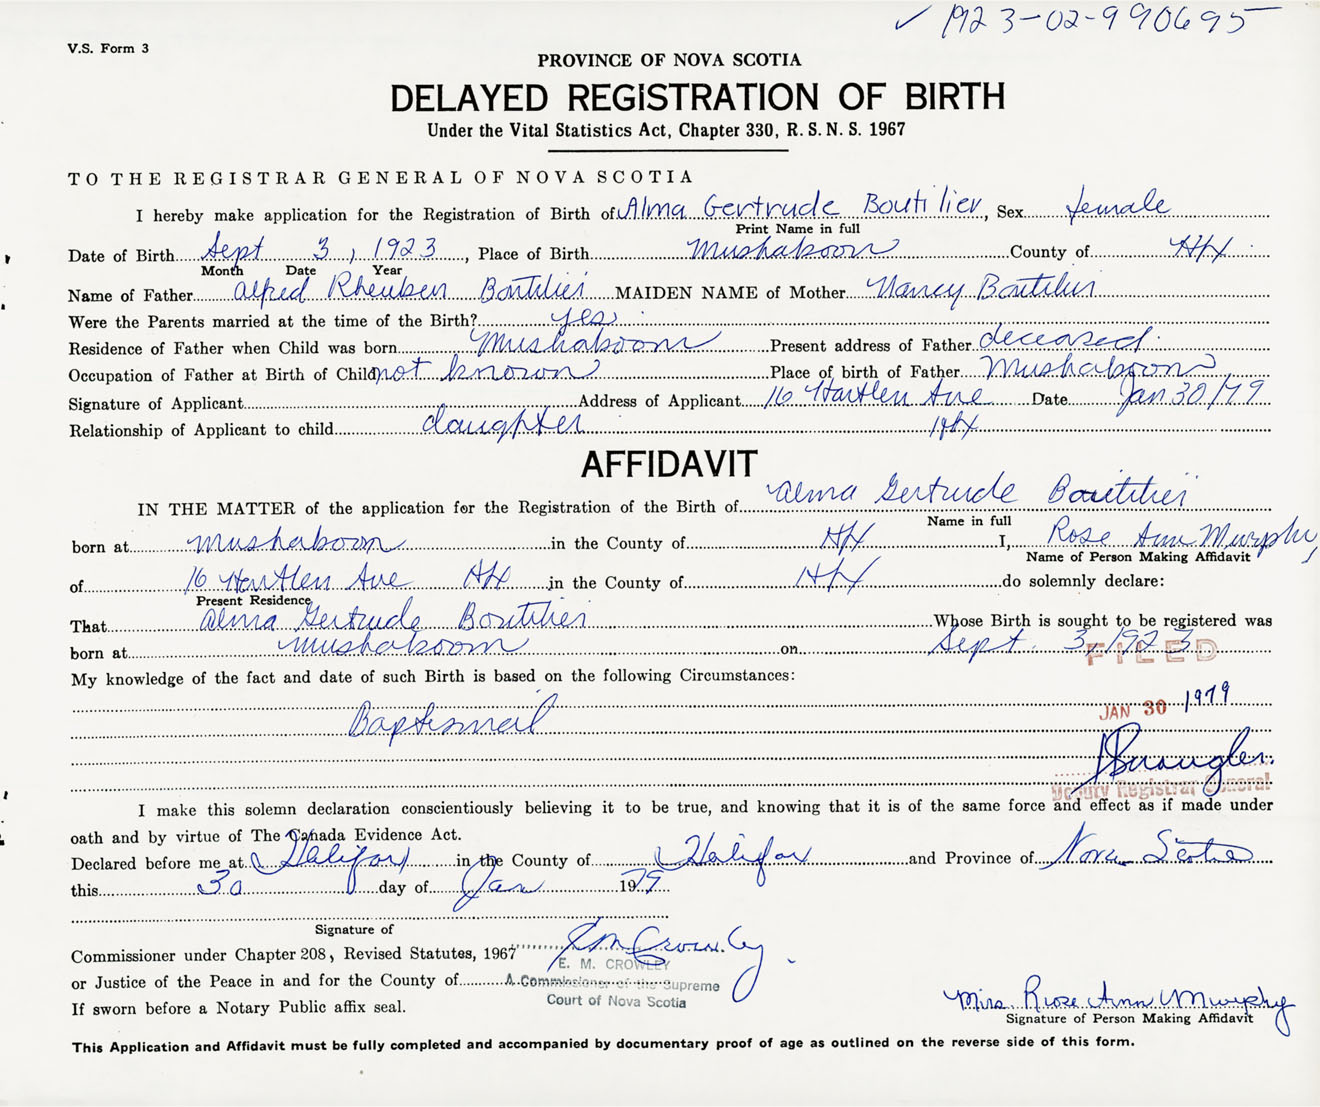 ✓ 1923-02-990695
V.S. Form 3
PROVINCE OF NOVA SCOTIA
DELAYED REGISTRATION OF BIRTH
Under the Vital Statistics Act, Chapter 330, R. S. N. S. 1967
TO THE REGISTRAR GENERAL OF NOVA SCOTIA
I hereby make application for the Registration of Birth of Alma Gertrude Boutilier, Sex female
Print Name in full
Date of Birth Sept 3, 1923, Place of Birth Mushaboom County of Hfx
Month Date Year
Name of Father Alfred Rheuben Boutilier MAIDEN NAME of Mother Nancy Boutilier
Were the Parents married at the time of the Birth? yes
Residence of Father when Child was born Mushaboom Present address of Father deceased
Occupation of Father at Birth of Child not known Place of birth of Father Mushaboom
Signature of Applicant Address of Applicant 16 Hartlen Ave Date Jan 30/79
Relationship of Applicant to child daughter Hfx
AFFIDAVIT
IN THE MATTER of the application for the Registration of the Birth of Alma Gertrude Boutilier
Name in full
born at Mushaboom in the County of Hfx I, Rose Ann Murphy,
Name of Person Making Affidavit
of 16 Hartlen Ave Hfx in the County of Hfx do solemnly declare:
Present Residence
That Alma Gertrude Boutilier Whose Birth is sought to be registered was
born at Mushaboom on Sept. 3, 1923
FILED
My knowledge of the fact and date of such Birth is based on the following Circumstances:
JAN 30 1979
Baptismal
Deputy Registrar General
I make this solemn declaration conscientiously believing it to be true, and knowing that it is of the same force and effect as if made under
oath and by virtue of The Canada Evidence Act.
Declared before me at Halifax in the County of Halifax and Province of Nova Scotia
this 30 day of Jan 1979
Signature of
Commissioner under Chapter 208, Revised Statutes, 1967 E M Crowley
E. M. CROWLEY
or Justice of the Peace in and for the County of A Commissioner of the Supreme
Court of Nova Scotia
If sworn before a Notary Public affix seal.
Mrs. Rose Ann Murphy
Signature of Person Making Affidavit
This Application and Affidavit must be fully completed and accompanied by documentary proof of age as outlined on the reverse side of this form.